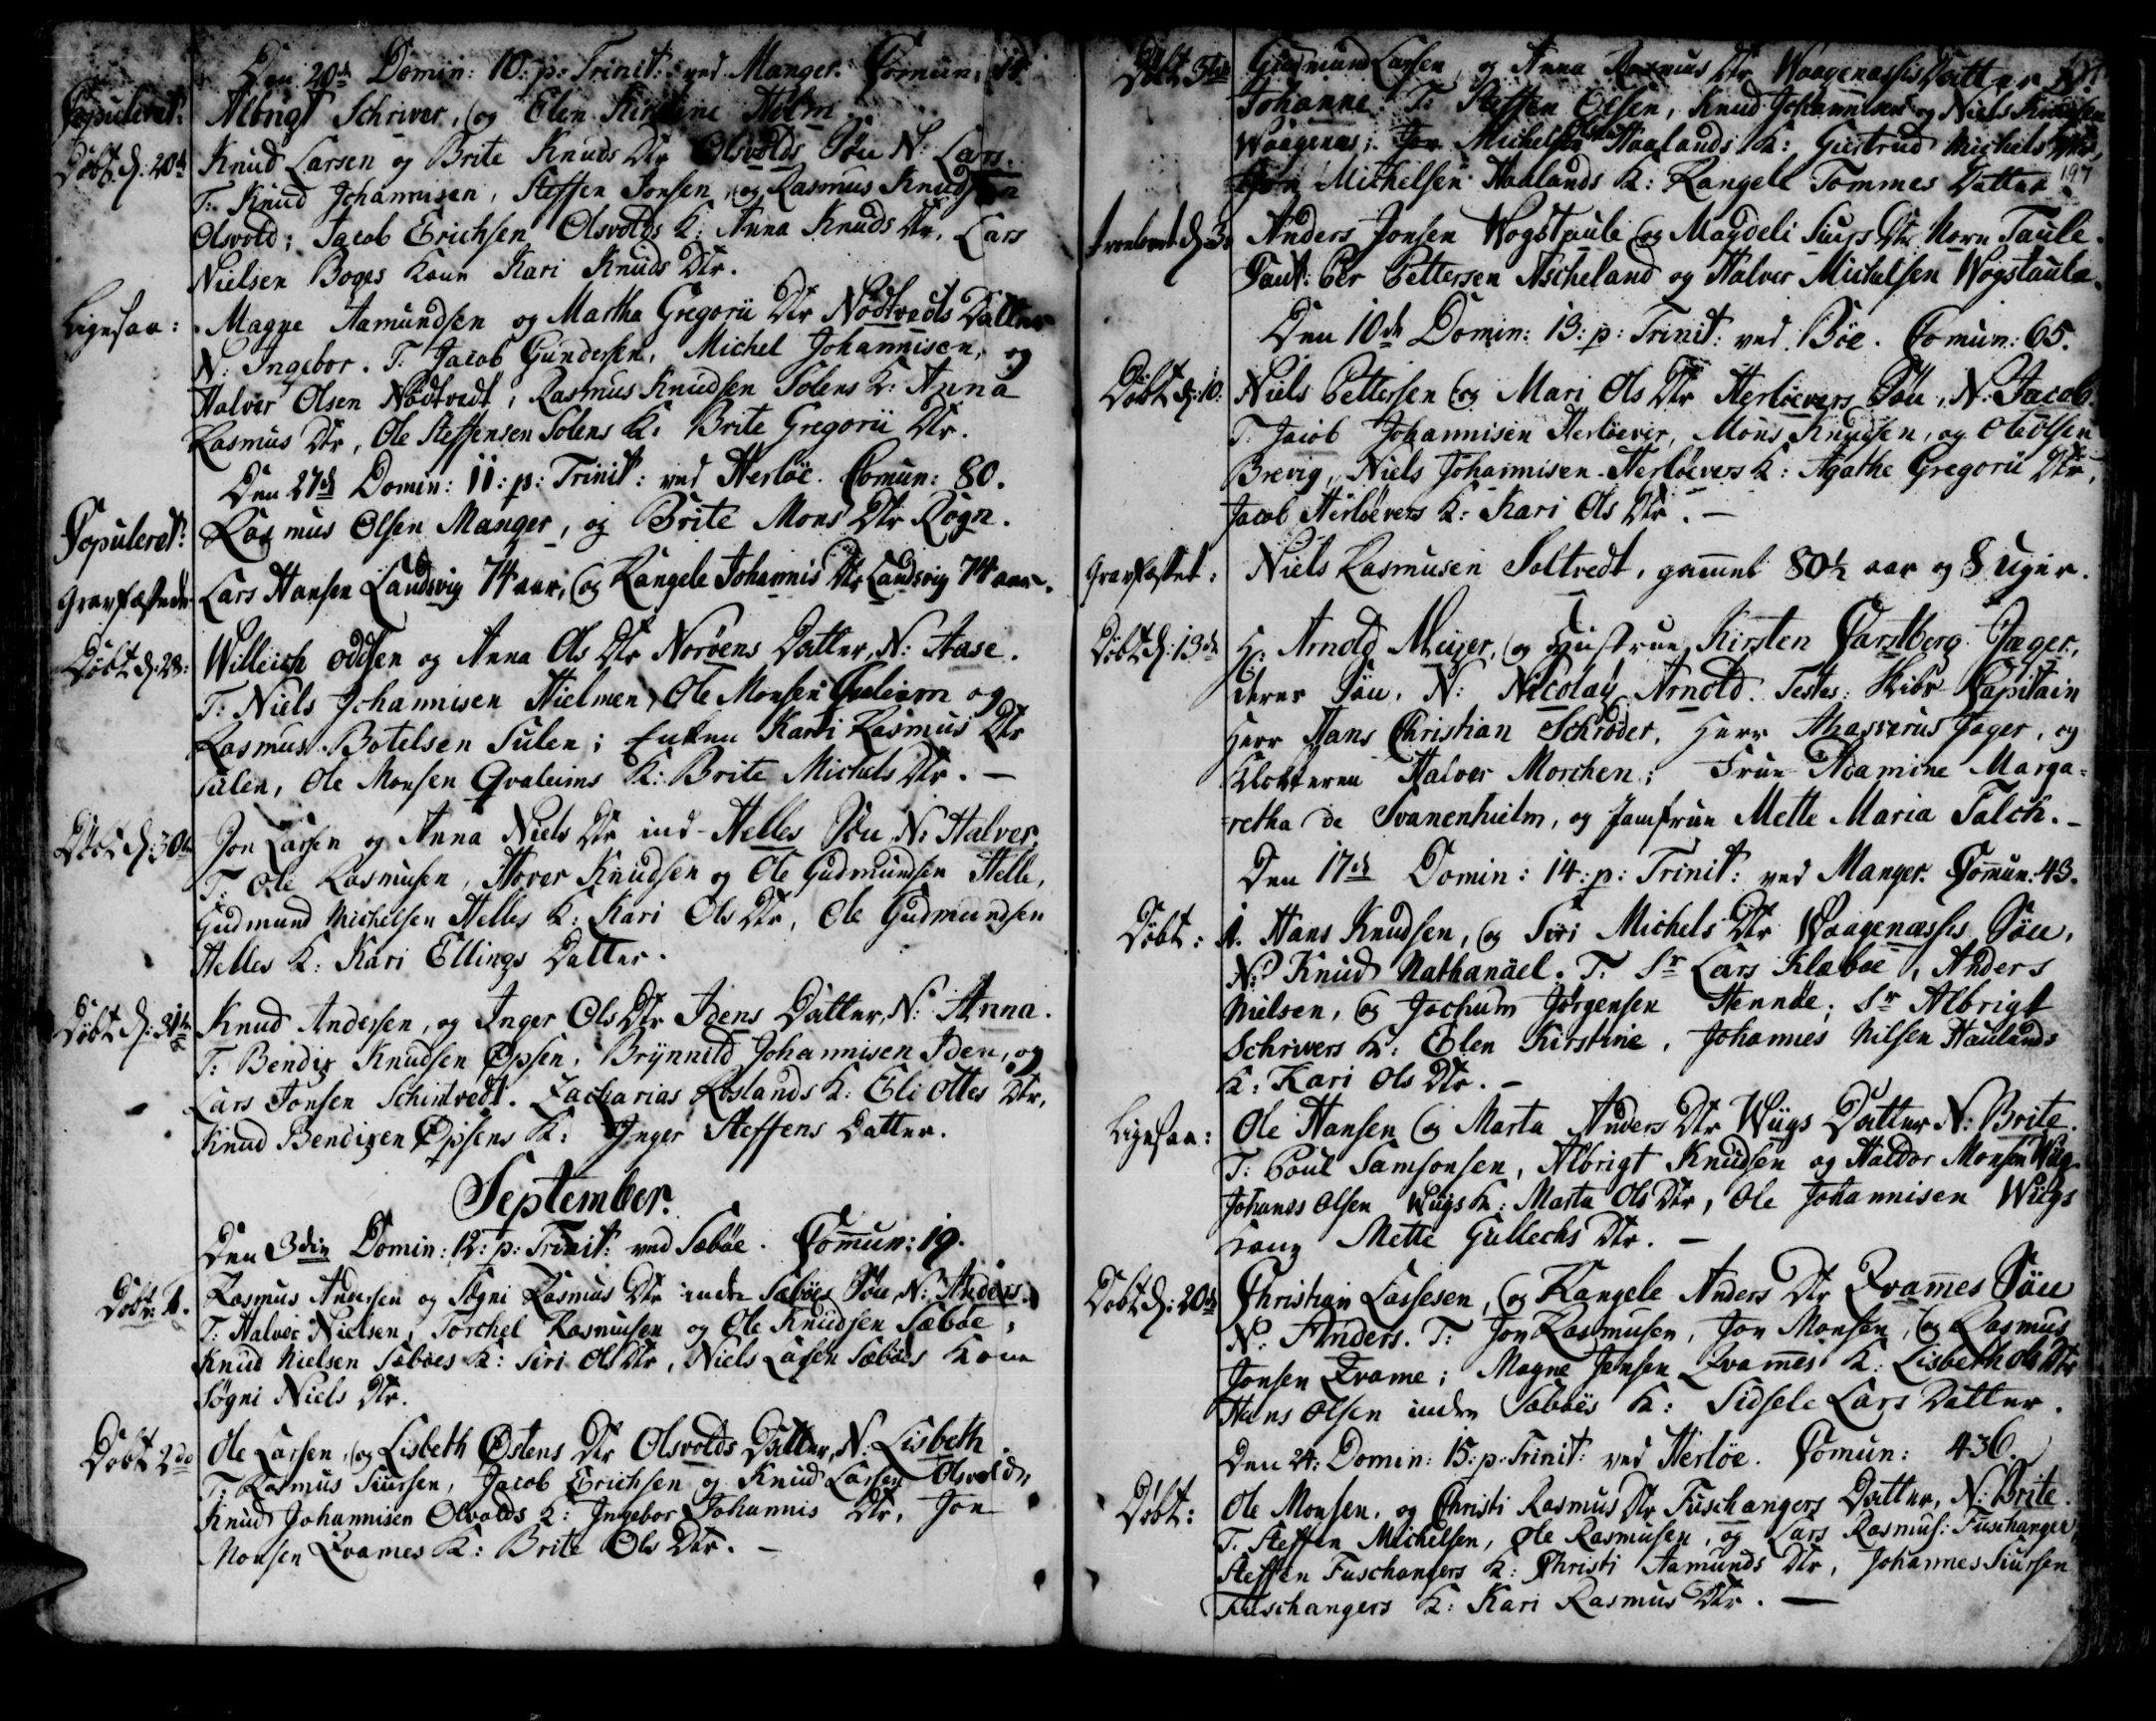 Den 20de Domin: 10: p: Trinit: ved Manger. Comun:
Copuleret: Albrigt Schriver, og Elen Kirstine Holm.
Døbt d: 20de Knud Larsen og Brite Knuds Dtr Olsvolds Søn N: Lars.
T: Knud Johannisen, Steffen Jonsen, og Rasmus Knudsen
Olsvold; Jacob Erichsen Olsvolds K: Anna Knuds Dtr, Lars
Nielsen Boges Kone Kari Knuds Dtr.
Ligesaa: Magne Aamundsen og Martha Gregorii Dtr Nødtvedts Datter
N: Ingebor. T: Jacob Gundersen, Michel Johannisen, og
Halver Olsen Nødtvedt, Rasmus Knudsen Solens K: Anna
Rasmus Dtr, Ole Steffensen Solens K: Brite Gregorii Dtr.
Den 27de Domin: 11: p: Trinit: ved Herløe. Comun: 80.
Copuleret: Rasmus Olsen Manger, og Brite Mons Dtr Rogn.
Gravfæstede Lars Hansen Landsvig 74 aar, og Rangele Johannis Dtr Landsvig 74 aar.
Døbt d: 28: Willich Oddsen og Anna Ols Dtr Norøens Datter, N: Aase.
T: Niels Johannisen Hielmen, Ole Monsen Qvaleim og
Rasmus Botelsen Sulen; Enken Kari Rasmus Dtr
Sulen, Ole Monsen Qvaleims K: Brite Michels Dtr. —
Døbt d: 30te Jon Larsen og Anna Niels Dtr ind-Helles Søn N: Halver.
T: Ole Rasmusen, Hover Knudsen og Ole Gudmundsen Helle,
Gudmund Michelsen Helles K: Kari Ols Dtr, Ole Gudmundsen
Helles K: Kari Ellings Datter.
Døbt d: 31te Knud Andersen, og Inger Ols Dtr Idens Datter, N: Anna.
T: Bendix Knudsen Øpsen, Brynnild Johannisen Iden, og
Lars Jonsen Schintvedt. Zacharias Roslands K: Eli Ottes Dtr,
Knud Bendixen Øpsens K: Inger Steffens Datter.
September.
Den 3die Domin: 12: p: Trinit: ved Sæbøe. Comun: 19.
Døbt: 1. Rasmus Andersen og Søgni Rasmus Dtr indre Sæbøes Søn, N: Anders.
T: Halver Nielsen, Torchel Rasmusen og Ole Knudsen Sæbøe,
Knud Nielsen Sæbøes K: Siri Ols Dtr, Niels Larsen Sæbøes Kone
Søgni Niels Dtr.
Døbt 2do Ole Larsen, og Lisbeth Østens Dtr Olsvolds Datter, N: Lisbeth.
T: Rasmus Siursen, Jacob Erichsen og Knud Larsen Olsvold,
Knud Johannisen Olsvolds K: Ingebor Johannis Dtr, Jon
Monsen Qvames K: Brite Ols Dtr. —
Døbt 3tio Gudmund Larsen, og Anna Rasmus Dtr Waagenæssis Datter N:
Johanne. T: Steffen Olsen, Knud Johannisen og Niels Knudsen
Waagenæs; Michelsen Haalands K: Giertrud Michels Dtr,
Jon Michelsen Haalands K: Rangele Tommes Datter.
197
Trolovet d: 3: Anders Jonsen Wogstaule og Magdeli Siurs Dtr Norn Taule.
Caut: Per Pettersen Ascheland og Halver Michelsen Wogstaule.
Den 10de Domin: 13: p: Trinit: ved Bøe. Comun: 65.
Døbt d: 10. Niels Pettersen og Mari Ols Dtr Herløevers Søn, N: Jacob.
T: Jacob Johannisen Herløever, Mons Knudsen, og Ole Olsen
Brevig, Niels Johannisen Herløevers K: Agathe Gregorii Dtr,
Jacob Herløevers K: Kari Ols Dtr. —
Gravfæstet: Niels Rasmusen Soltvedt, gamel 80½ aar og 8 Uger.
Døbt d: 13de Hr: Arnold Meier, og Hustrue Kirsten Carstberg Jæger,
deres Søn, N: Nicolay Arnold. Testes: Skibs Capitain
Herr Hans Christian Schrøder, Herr Ahasverus Jæger, og
Klokkeren Halver Morchen; Frue Adamine Marga-
retha de Svanenhielm, og Jomfrue Mette Maria Falch. —
Den 17de Domin: 14: p: Trinit: ved Manger. Comun: 43.
Døbt: 1. Hans Knudsen, og Siri Michels Dtr Waagenæssis Søn,
N: Knud Nathanäel. T: Sr Lars Klæboe, Anders
Nielsen, og Jochum Jørgensen Hennøe; Sr Albrigt
Schrivers K: Elen Kirstine, Johannes Nilsen Haulands
K: Kari Ols Dtr. —
Ligesaa: Ole Hansen og Marta Anders Dtr Wiigs Datter N: Brite.
T: Poul Samsonsen, Albrigt Knudsen og Haldor Monsen Wiig.
Johannes Olsen Wiigs K: Marta Ols Dtr, Ole Johannisen Wiigs
Kone Mette Gullechs Dtr. —
Døbt d: 20de Christian Lassesen, og Rangele Anders Dtr Qvames Søn
N: Anders. T: Jon Rasmusen, Jon Monsen, og Rasmus
Jonsen Qvame; Magne Jensen Qvames K: Lisbeth Ols Dtr
Hans Olsen indre Sæbøes K: Sidsele Lars Datter.
Den 24: Domin: 15: p: Trinit: ved Herløe. Comun: 436.
Døbt: Ole Monsen, og Christi Rasmus Dtr Fuschangers Datter, N: Brite.
T: Steffen Michelsen, Ole Rasmusen, og Lars Rasmus: Fuschanger,
Steffen Fuschangers K: Christi Aamunds Dtr, Johannes Siursen
Fuschangers K: Kari Rasmus Dtr. —